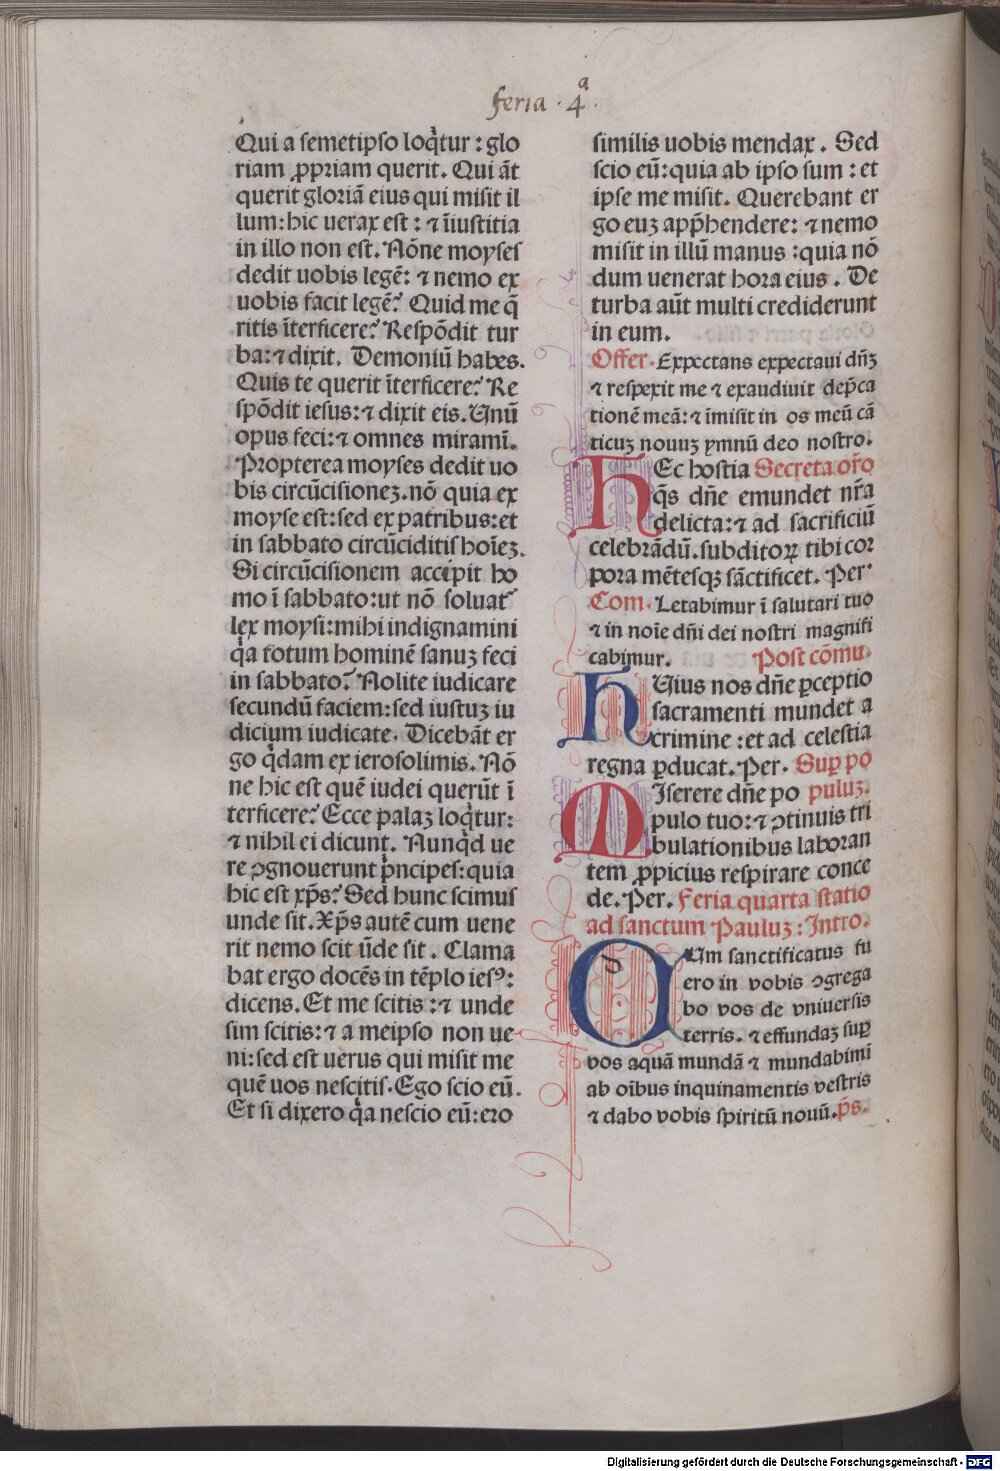 feria · 4ª ·
Qui a semetipso loq̇tur : glo
riam ꝓpriam querit. Qui āt
querit gloriā eius qui misit il
lum: hic uerax est : ⁊ īiustitia
in illo non est. Nōne moyses
dedit uobis legē: ⁊ nemo ex
uobis facit legē? Quid me q̄
ritis īterficere? Respōdit tur
ba: ⁊ dixit. Demoniū habes.
Quis te querit īterficere? Re
spōdit iesus: ⁊ dixit eis. Unū
opus feci: ⁊ omnes miramī.
Propterea moyses dedit uo
bis circūcisionez. nō quia ex
moyse est: sed ex patribus: et
in sabbato circūciditis hoīez.
Si circūcisionem accipit ho
mo ī sabbato: ut nō soluať
lex moysi: mihi indignamini
q̇a totum hominē sanuz feci
in sabbato? Nolite iudicare
secundū faciem: sed iustuz iu
dicium iudicate. Dicebāt er
go q̇dam ex ierosolimis. Nō
ne hic est quē iudei querūt ī
terficere? Ecce palaz loq̇tur:
⁊ nihil ei dicunt. Nunq̇d ue
re ꝯgnouerunt ṗncipes: quia
hic est xp̄s? Sed hunc scimus
unde sit. Xp̄s autē cum uene
rit nemo scit ūde sit . Clama
bat ergo docēs in tēplo iesꝰ:
dicens. Et me scitis : ⁊ unde
sim scitis: ⁊ a meipso non ue
ni: sed est uerus qui misit me
quē uos nescitis. Ego scio eū.
Et si dixero q̇a nescio eū: ero
similis uobis mendax . Sed
scio eū: quia ab ipso sum : et
ipse me misit. Querebant er
go euz app̄hendere: ⁊ nemo
misit in illū manus : quia nō
dum uenerat hora eius . De
turba aūt multi crediderunt
in eum.
Offer. Expectans expectaui dn̄z
⁊ respexit me ⁊ exaudiuit dep̄ca
tionē meā: ⁊ īmisit in os meū cā
ticuz nouuz ymnū deo nostro.
HEc hostia Secreta or̄o
q̄s dn̄e emundet nr̄a
delicta: ⁊ ad sacrificiū
celebrādū. subditoꝝ tibi cor
pora mētesqꝫ sāctificet. Per
Com. Letabimur ī salutari tuo
⁊ in noīe dn̄i dei nostri magnifi
cabimur. Post cōmu.
HUius nos dn̄e ꝑceptio
sacramenti mundet a
crimine : et ad celestia
regna ꝑducat. Per. Suꝑ po
MIserere dn̄e po puluz.
pulo tuo: ⁊ ꝯtinuis tri
bulationibus laboran
tem ꝓpicius respirare conce
de. Per. Feria quarta statio
ad sanctum Pauluz : Intro.
CUm sanctificatus fu
ero in vobis ꝯgrega
bo vos de vniuersis
terris. ⁊ effundaz suꝑ
vos aquā mundā ⁊ mundabimī
ab oībus inquinamentis vestris
⁊ dabo vobis spiritū nouū. p̄s.
Digitalisierung gefördert durch die Deutsche Forschungsgemeinschaft - DFG